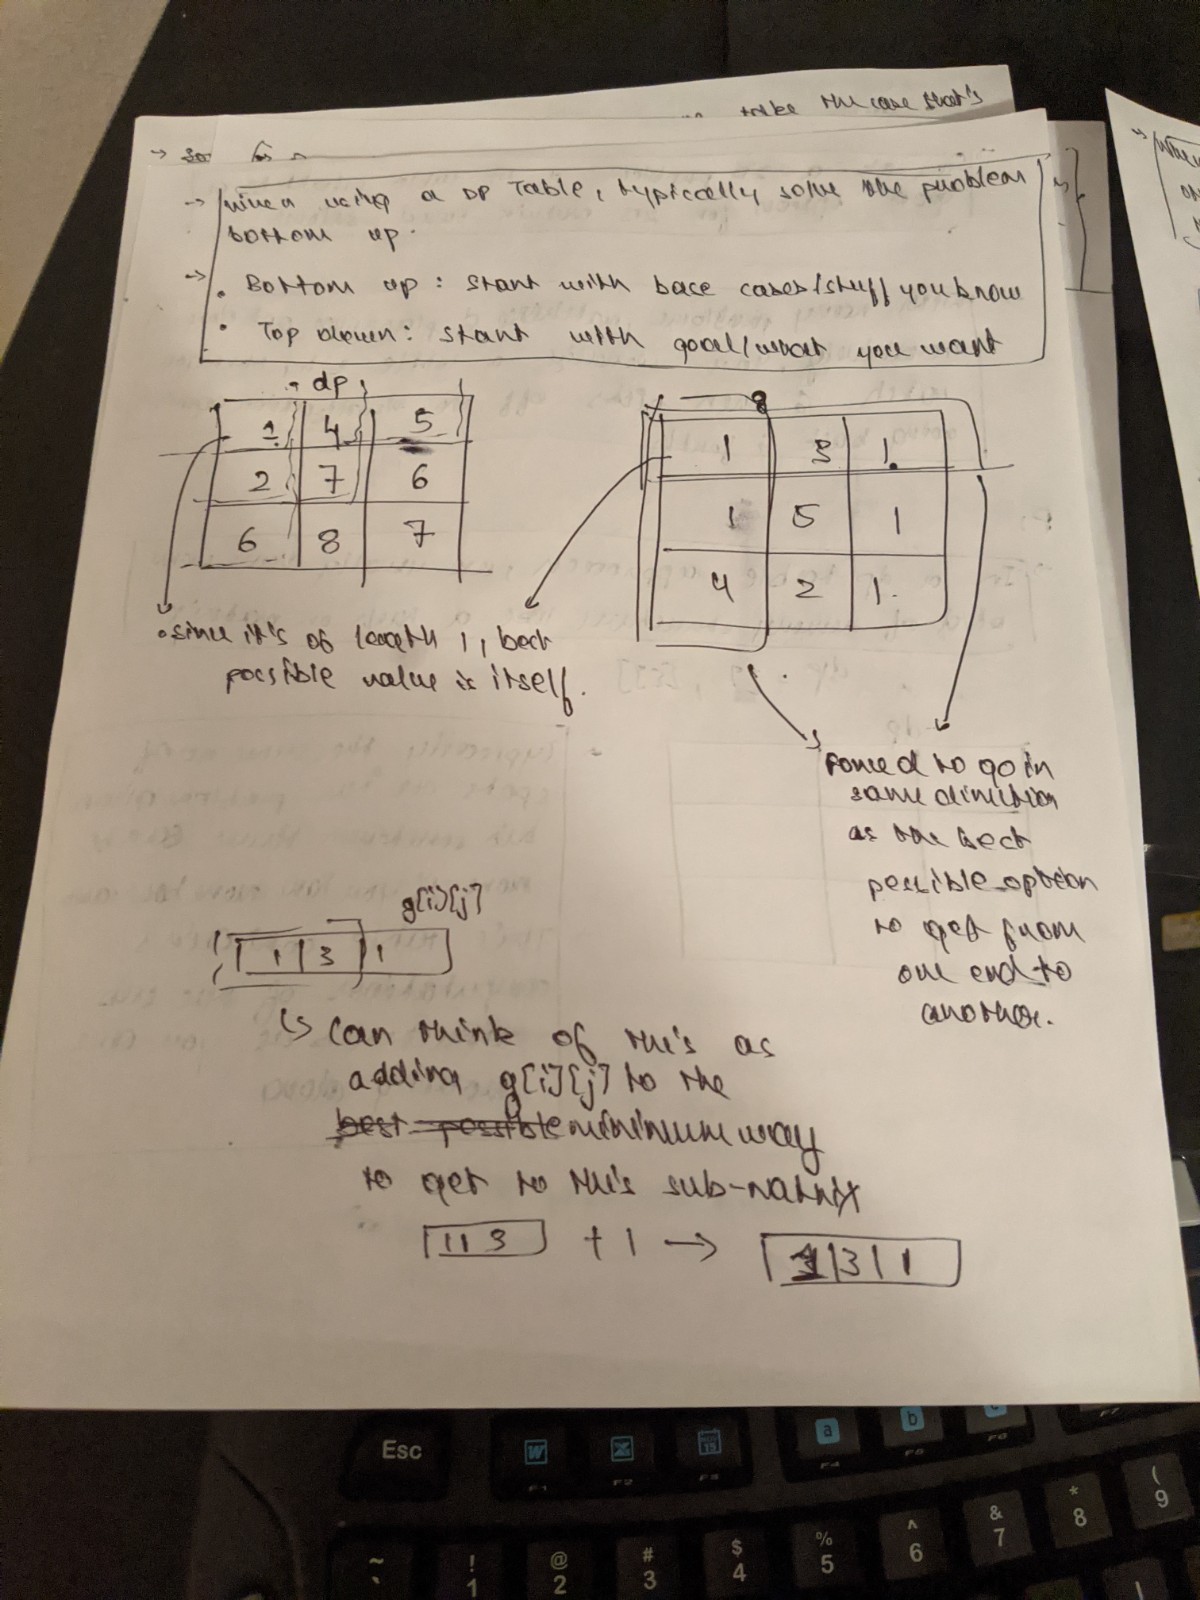 take the case that's
→ When using a DP Table, typically solve the problem
bottom up.
→ • Bottom up: start with base cases/stuff you know
• Top down: start with goal/what you want
dp
1 4 5
2 7 6
6 8 7
g
1 3 1
1 5 1
4 2 1
• since it's of length 1, best
possible value is itself.
Forced to go in
same direction
as the best
possible option
to get from
one end to
another.
g[i][j]
1 3 1
↳ can think of this as
adding g[i][j] to the
best possible minimum way
to get to this sub-matrix
1 3 + 1 → 1 3 1
Esc
F1
F2
F3
F4
F5
F6
F7
a
b
c
~
`
!
1
@
2
#
3
$
4
%
5
^
6
&
7
*
8
(
9